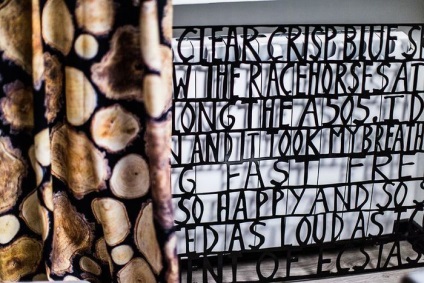 CLEAR CRISP BLUE S
W THE RACEHORSES AT
ONG THE A505. I D
AND IT TOOK MY BREATH
G FAST FRE
SO HAPPY AND SO S
ED AS LOUD AS I C
ENT OF ECSTAS